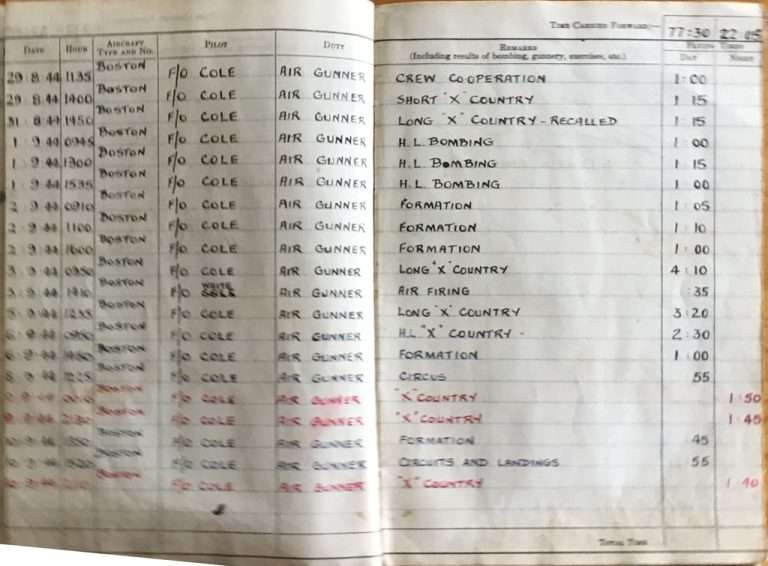 TIME CARRIED FORWARD:— 77:30 22 05
DATE HOUR AIRCRAFT TYPE AND NO. PILOT DUTY REMARKS (Including results of bombing, gunnery, exercises, etc.) FLYING TIMES DAY NIGHT
29 8 44 1135 BOSTON F/O COLE AIR GUNNER CREW CO-OPERATION 1:00
29 8 44 1400 BOSTON F/O COLE AIR GUNNER SHORT "X" COUNTRY 1 15
31 8 44 1450 BOSTON F/O COLE AIR GUNNER LONG "X" COUNTRY - RECALLED 1 15
1 9 44 0945 BOSTON F/O COLE AIR GUNNER H.L. BOMBING 1 00
1 9 44 1300 BOSTON F/O COLE AIR GUNNER H.L. BOMBING 1 15
1 9 44 1535 BOSTON F/O COLE AIR GUNNER H.L. BOMBING 1 00
2 9 44 0910 BOSTON F/O COLE AIR GUNNER FORMATION 1 05
2 9 44 1100 BOSTON F/O COLE AIR GUNNER FORMATION 1 10
2 9 44 1600 BOSTON F/O COLE AIR GUNNER FORMATION 1:00
3 9 44 0950 BOSTON F/O COLE AIR GUNNER LONG "X" COUNTRY 4:10
3 9 44 1410 BOSTON F/O WHITE AIR GUNNER AIR FIRING :35
5 9 44 1235 BOSTON F/O COLE AIR GUNNER LONG "X" COUNTRY 3:20
6 9 44 BOSTON F/O COLE AIR GUNNER H.L "X" COUNTRY - 2:30
6 9 44 BOSTON F/O COLE AIR GUNNER FORMATION 1:00
8 9 44 1225 BOSTON F/O COLE AIR GUNNER CIRCUS 55
BOSTON F/O COLE AIR GUNNER "X" COUNTRY 1:50
BOSTON F/O COLE AIR GUNNER "X" COUNTRY 1:45
BOSTON F/O COLE AIR GUNNER FORMATION 45
BOSTON F/O COLE AIR GUNNER CIRCUITS AND LANDINGS 55
BOSTON F/O COLE AIR GUNNER "X" COUNTRY 1 40
TOTAL TIME